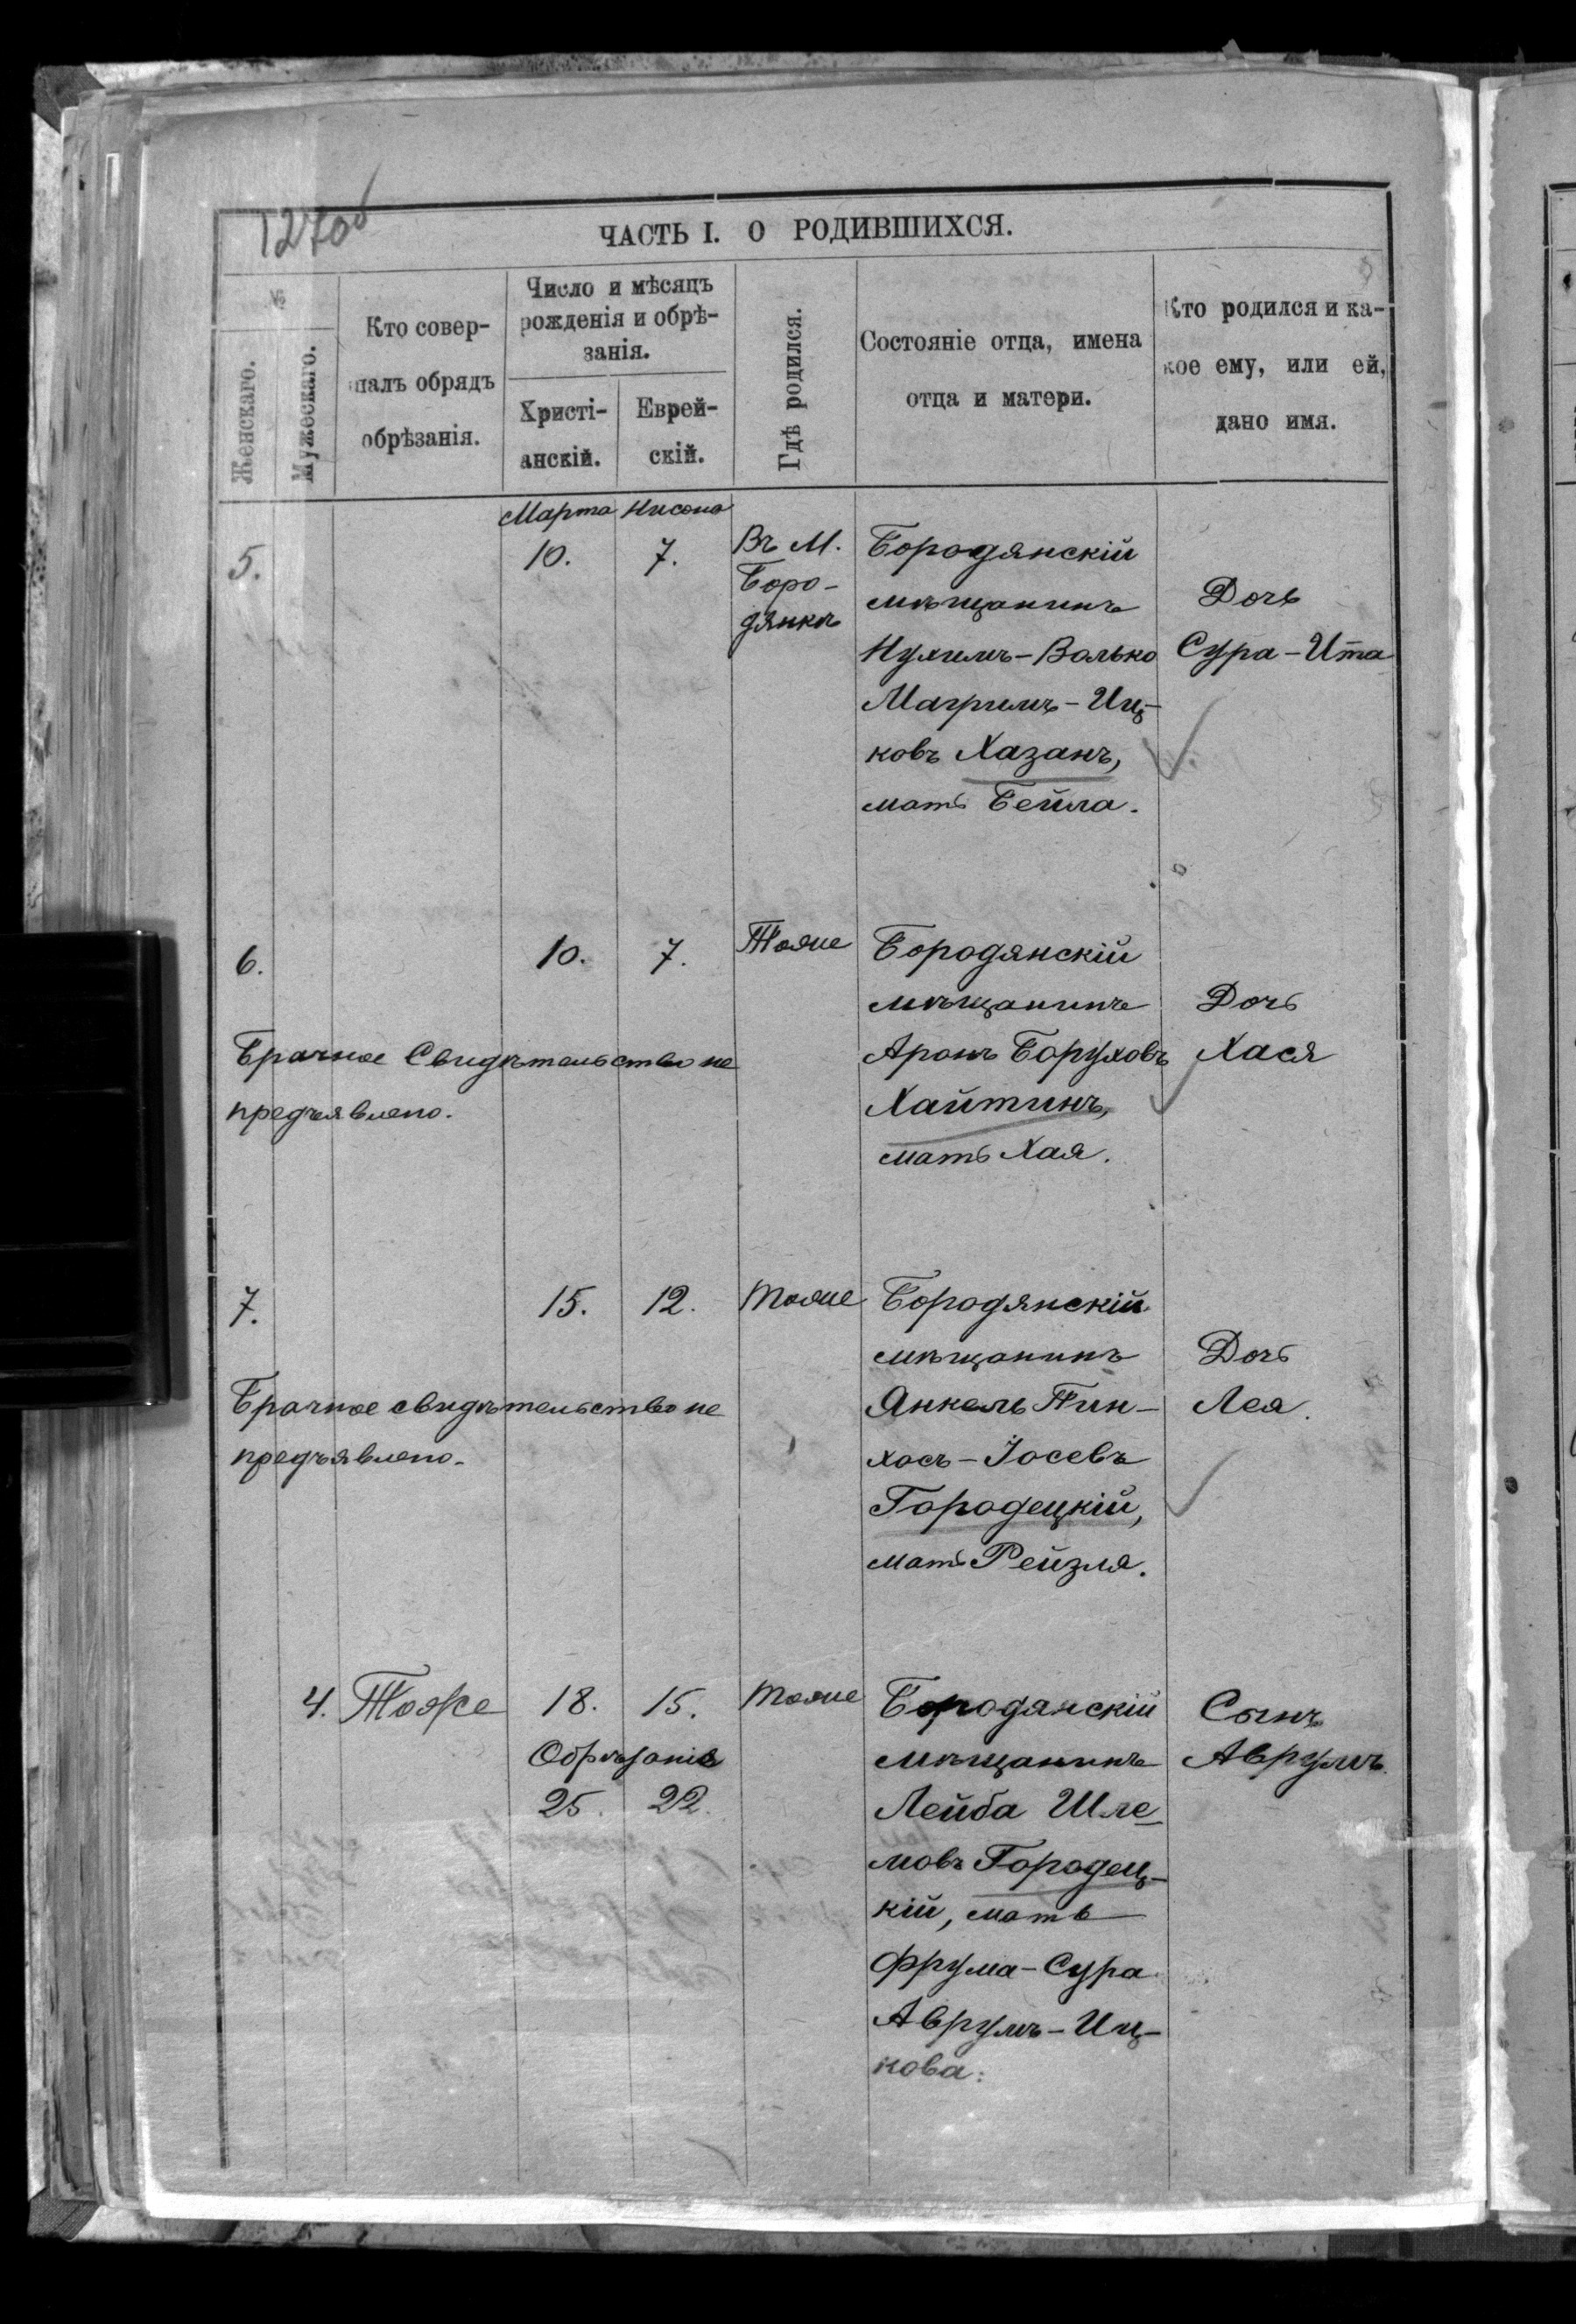 127об
ЧАСТЬ I. О РОДИВШИХСЯ.
№
Женскаго.
Мужескаго.
Кто совер-
шалъ обрядъ
обрѣзанія.
Число и мѣсяцъ
рожденія и обрѣ-
занія.
Христі-
анскій.
Еврей-
скій.
Гдѣ родился.
Состояніе отца, имена
отца и матери.
Кто родился и ка-
кое ему, или ей,
дано имя.
Марта Нисона
5.
10.
7.
Въ М.
Боро-
дянкѣ
Бородянскій
мѣщанинъ
Нухимъ-Волько
Маргимъ-Иц-
ковъ Хазанъ,
мать Бейла.
Дочь
Сура-Ита
6.
10.
7.
Тоже
Бородянскій
мѣщанинъ
Аронъ Боруховъ
Хайтинъ,
мать Хая.
Дочь
Хася
Брачное Свидѣтельство не
предъявлено.
7.
15.
12.
Тоже
Бородянскій
мѣщанинъ
Янкель Пин-
хосъ-Іосевъ
Городецкій,
мать Рейзля.
Дочь
Лея.
Брачное свидѣтельство не
предъявлено.
4.
Тоже
18.
15.
Обрѣзанія
25.
22.
Тоже
Бородянскій
мѣщанинъ
Лейба Шле-
мовъ Городец-
кій, мать
Фрума-Сура
Аврумъ-Иц-
кова.
Сынъ
Аврумъ.